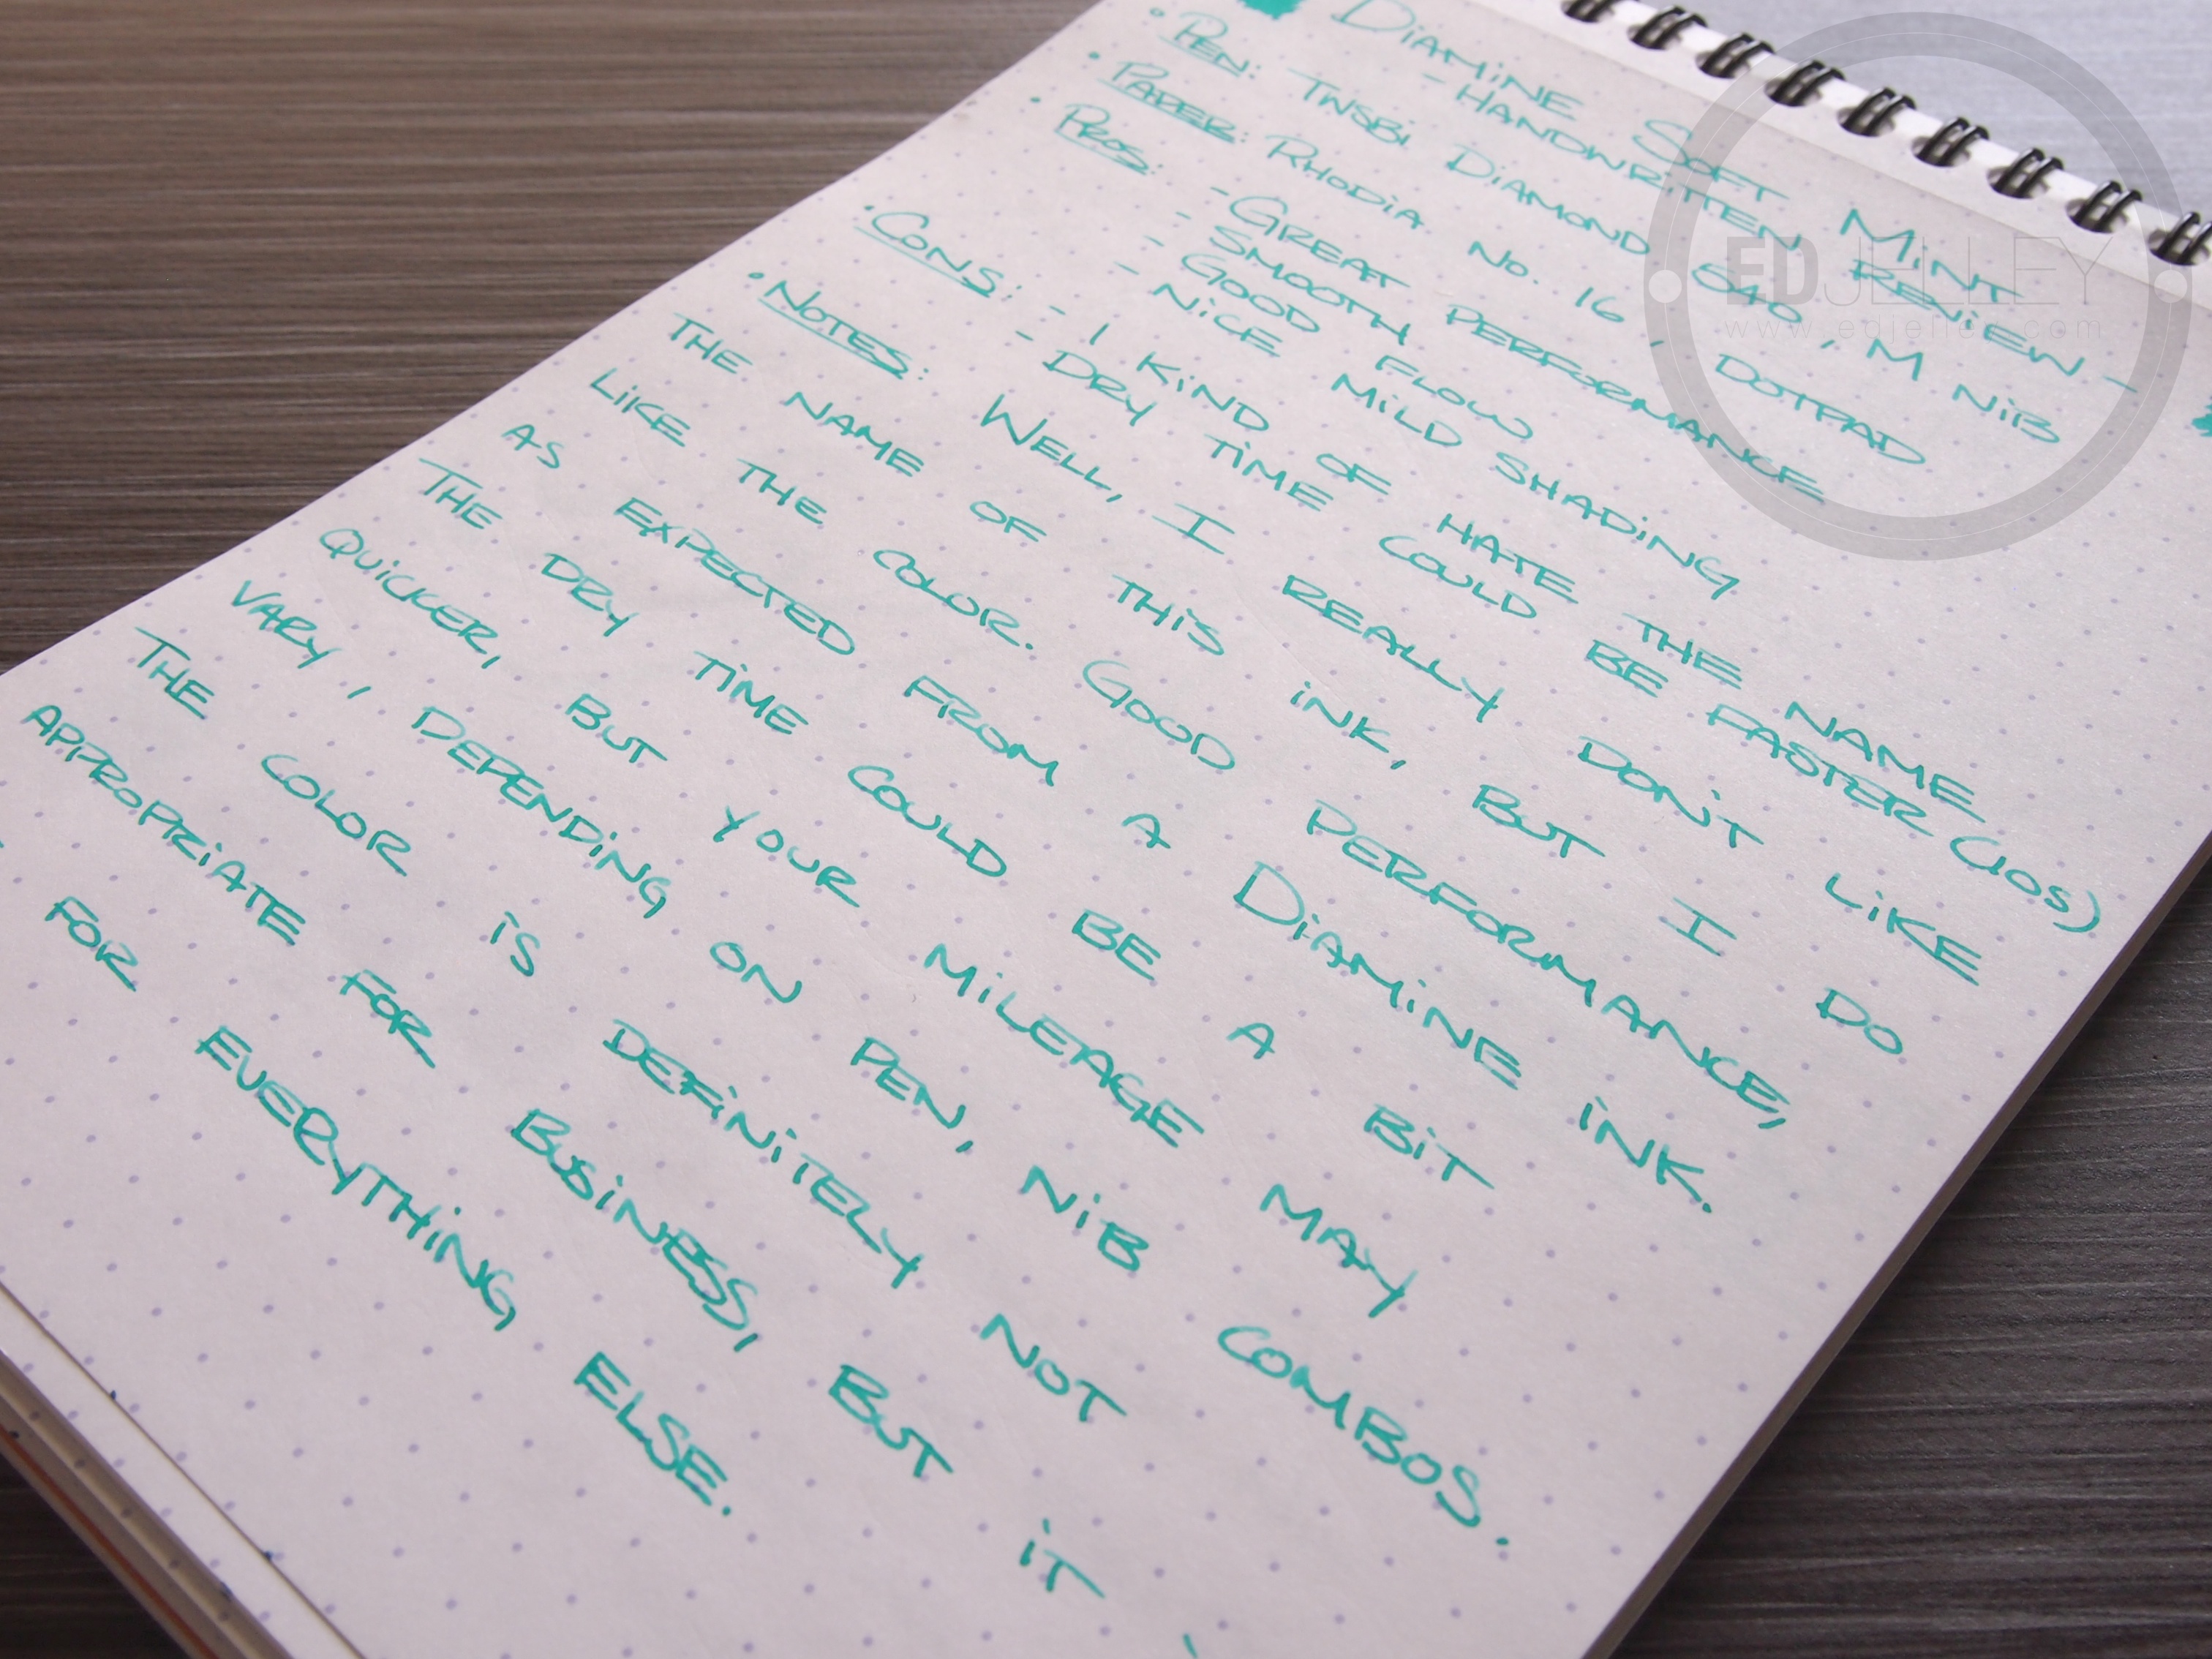 Diamine Soft Mint
- HANDWRITTEN REVIEW -
• PEN: TWSBI DIAMOND 540, M NIB
• PAPER: RHODIA No. 16, DOTPAD
• PROS: - GREAT PERFORMANCE
- SMOOTH FLOW
- GOOD
- NICE MILD SHADING
• CONS: - I KIND OF HATE THE NAME
- DRY TIME COULD BE FASTER (10s)
• NOTES: WELL, I REALLY DON'T LIKE
THE NAME OF THIS INK, BUT I DO
LIKE THE COLOR. GOOD PERFORMANCE,
AS EXPECTED FROM A DIAMINE INK.
THE DRY TIME COULD BE A BIT
QUICKER, BUT YOUR MILEAGE MAY
VARY, DEPENDING ON PEN, NIB COMBOS.
THE COLOR IS DEFINITELY NOT
APPROPRIATE FOR BUSINESS, BUT IT
FOR EVERYTHING ELSE.
EDJELLEY
www.edjelley.com